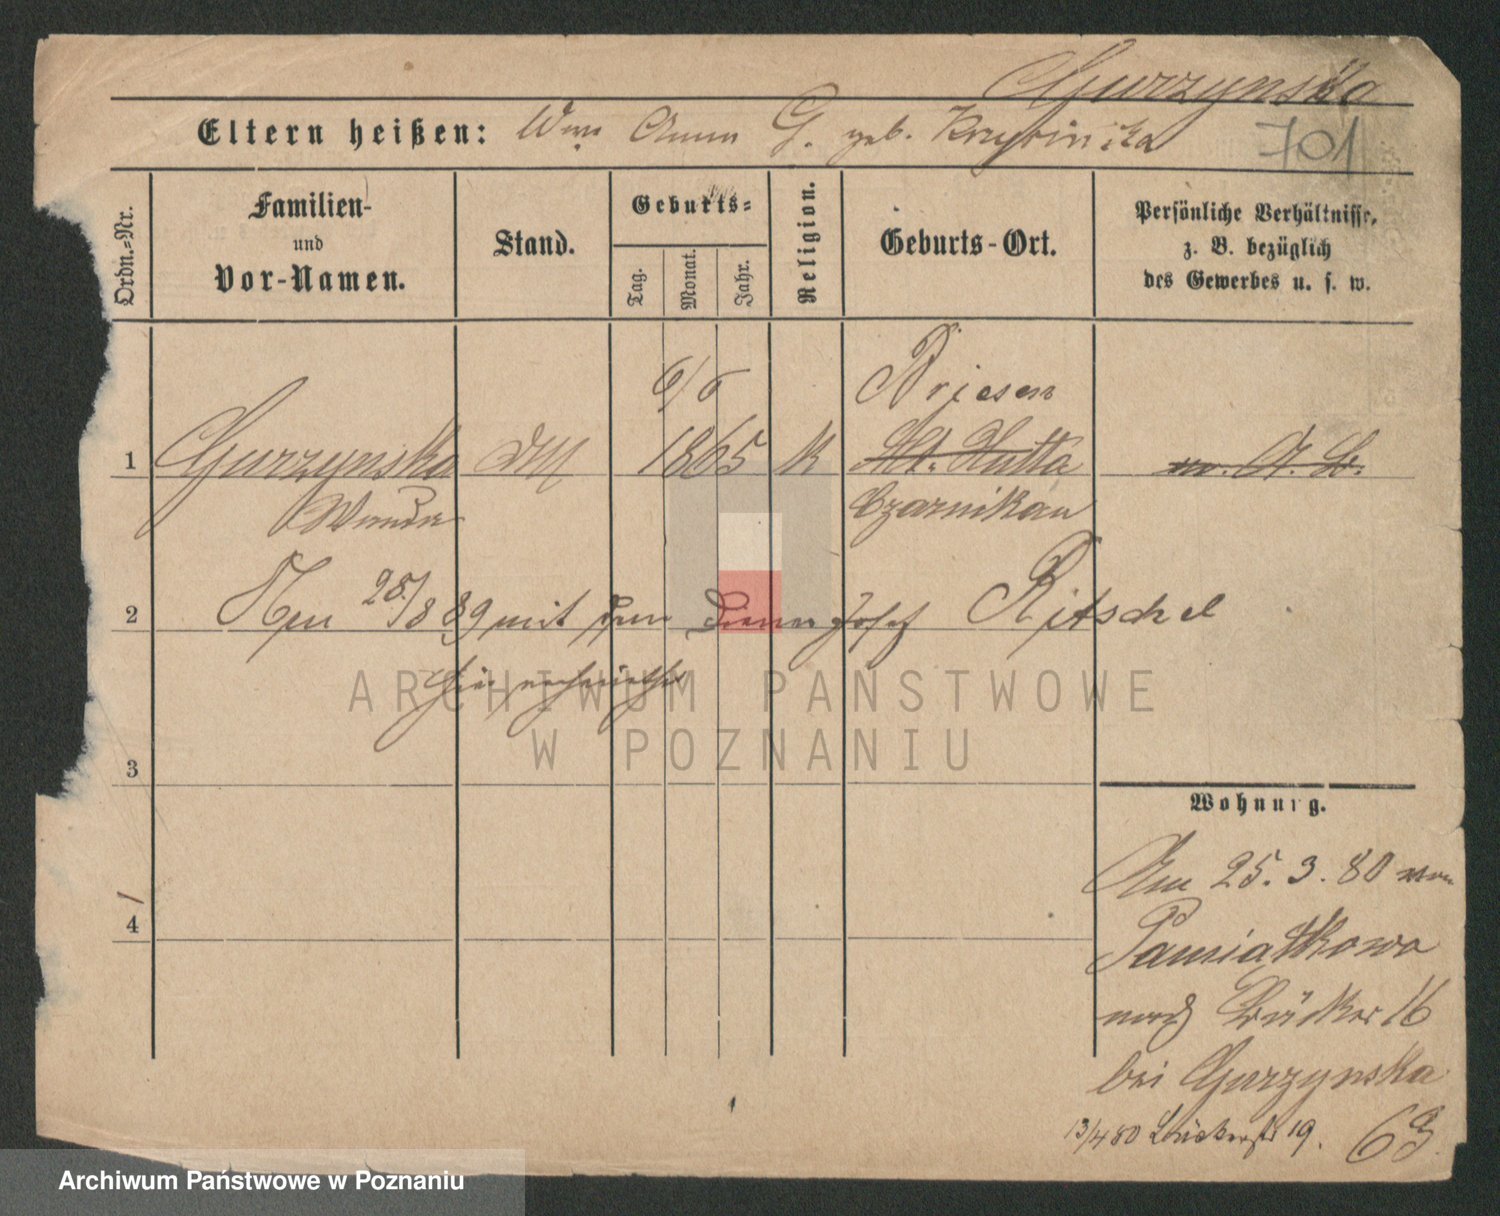 Gurzynska
Eltern heißen: Wwe Anna G. geb.
701
Ordn.-Nr.
Familien-
und
Vor-Namen.
Stand.
Geburts-
Tag.
Monat.
Jahr.
Religion.
Geburts-Ort.
Persönliche Verhältnisse,
z. B. bezüglich
des Gewerbes u. s. w.
6/6
Briesen
1 Gurzynska DM 1865 K Hutta
Wanda Czarnikau
2 28/8 89 mit dem Diener Josef Ritschel
hier verheirathet
ARCHIWUM PAŃSTWOWE
W POZNANIU
3
Wohnung.
Am 25. 3. 80 von
4 Pamiątkowo
nach Bäcker 16
bei Gurzynska
13/4 80 Bäckerstr 19.
63
Archiwum Państwowe w Poznaniu